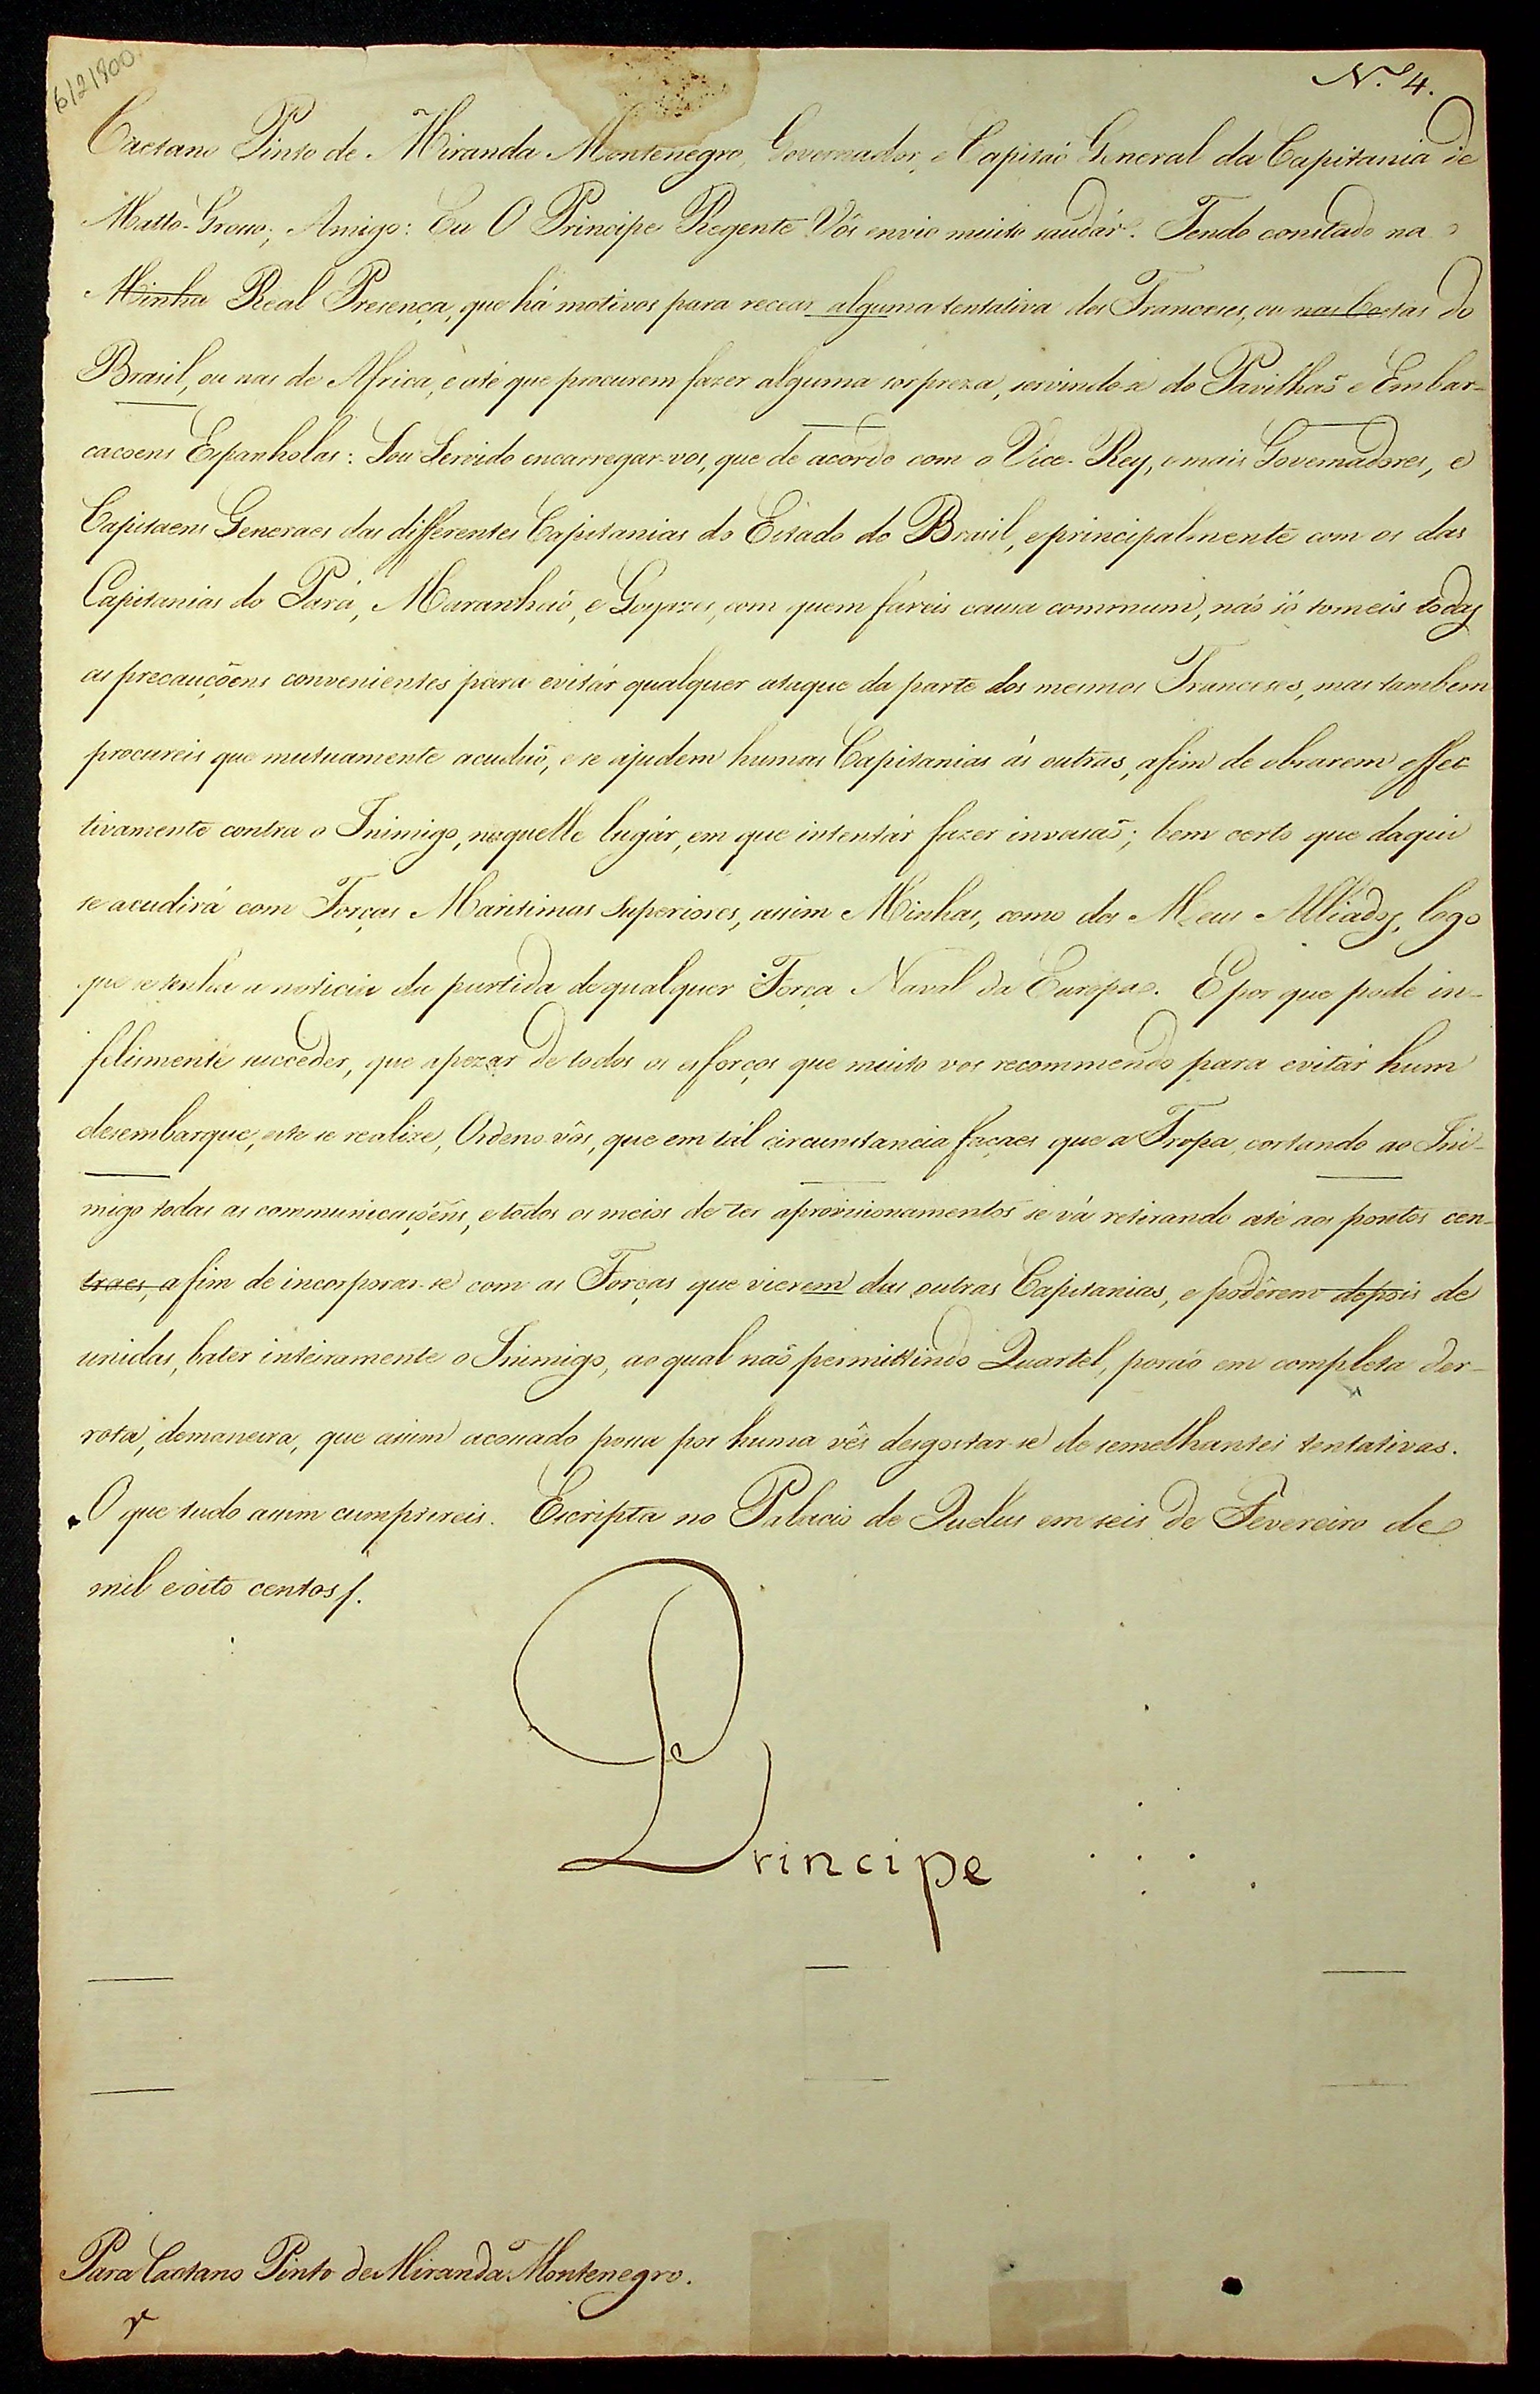 6/2/800
N.º 4.
Caetano Pinto de Miranda Montenegro, Governador, e Capitaõ General da Capitania de
Matto-Grosso; Amigo: Eu O Principe Regente Vós envio muito saudár. Tendo constado na
Minha Real Presença, que há motivos para recear alguma tentativa dos Franceses, ou nas Costas do
Brasil, ou nas de Africa, e até que procurem fazer alguma sorpreza, servindo-se do Pavilhaõ e Embar-
cacoens Espanholas: Sou Servido encarregar-vos, que de acordo com o Vice-Rey, e mais Governadores, e
Capitaens Generaes das differentes Capitanias do Estado do Brasil, e principalmente com os das
Capitanias do Pará, Maranhaõ, e Goyazes, com quem fareis causa commum, náo só tomeis todas
as precauçoens convenientes para evitár qualquer ataque da parte dos mesmos Franceses, mas tambem
procureis que mutuamente acudaõ, e se ajudem humas Capitanias ás outras, afim de obrarem effec
tivamente contra o Inimigo, naquelle lugár, em que intentár fazer invasaõ; bem certo que daqui
se acudirá com Forças Maritimas superiores, assim Minhas, como dos Meus Alliados, logo
que se tenha a noticia da partida de qualquer Força Naval da Europa. E por que pode in-
felismente succeder, que apezar de todos os esforços que muito vos recommendo para evitár hum
desembarque, este se realize, Ordeno-vós, que em tál circunstancia façaes que a Tropa, cortando ao Ini-
migo todas as communicaçoẽns, e todos os meios de ter aprovisionamentos se vá retirando até aos pontos cen-
traes, afim de incorporar-se com as Forças que vierem das outras Capitanias, e podêrem depois de
unidas, bater inteiramente o Inimigo, ao qual naõ permittindo Quartel, poraõ em completa der-
rota, demaneira, que assim acossado possa por huma vês desgostar-se de semelhantes tentativas.
O que tudo assim cumprireis. Escripta no Palacio de Quelus em seis de Fevereiro de
mil e oito centos /.
Principe
Para Caetano Pinto de Miranda Montenegro.